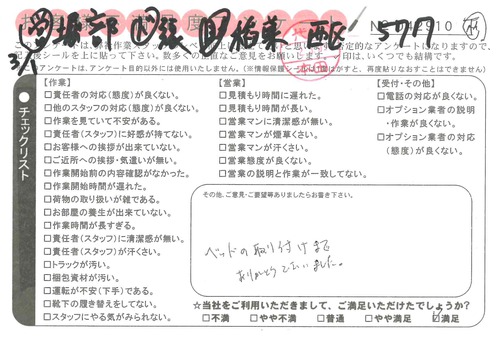 堀部 張 柏葉 西区 5777
3/1
記入後シールを上に貼って下さい。数多くの
アンケートは、アンケート目的以外には使用いたしません。(※情報保護シール
チェックリスト
【作業】
□責任者の対応(態度)が良くない。
□他のスタッフの対応(態度)が良くない。
□作業を見ていて不安がある。
□責任者(スタッフ)に好感が持てない。
□お客様への挨拶が出来ていない。
□ご近所への挨拶・気遣いが無い。
□作業開始前の内容確認がなかった。
□作業開始時間が遅れた。
□荷物の取り扱いが雑である。
□お部屋の養生が出来ていない。
□作業時間が長すぎる。
□責任者(スタッフ)に清潔感が無い。
□責任者(スタッフ)が汗くさい。
□トラックが汚い。
□梱包資材が汚い。
□運転が不安(下手)である。
□靴下の履き替えをしてない。
□スタッフにやる気がみられない。
【営業】
□見積もり時間に遅れた。
□見積もり時間が長い。
□営業マンに清潔感が無い。
□営業マンが煙草くさい。
□営業マンが汗くさい。
□営業態度が良くない。
□営業の説明と作業が一致してない。
【受付・その他】
□電話の対応が良くない。
□オプション業者の説明
・作業が良くない。
□オプション業者の対応
(態度)が良くない。
その他、ご意見・ご要望等ありましたらお書き下さい。
ベッドの取り付けまで
ありがとうございました。
☆当社をご利用いただきまして、ご満足いただけたでしょうか?
□不満 □やや不満 □普通 □やや満足 ☑満足